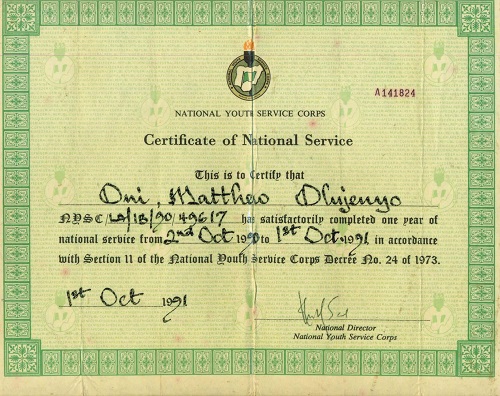 A141824
NATIONAL YOUTH SERVICE CORPS
Certificate of National Service
This is to Certify that
Oni, Matthew Olujenyo
NYSC/LA/IB/90/49617 has satisfactorily completed one year of
national service from 2nd Oct 1990 to 1st Oct 1991 in accordance
with Section 11 of the National Youth Service Corps Decree No. 24 of 1973.
1st Oct 1991
National Director
National Youth Service Corps